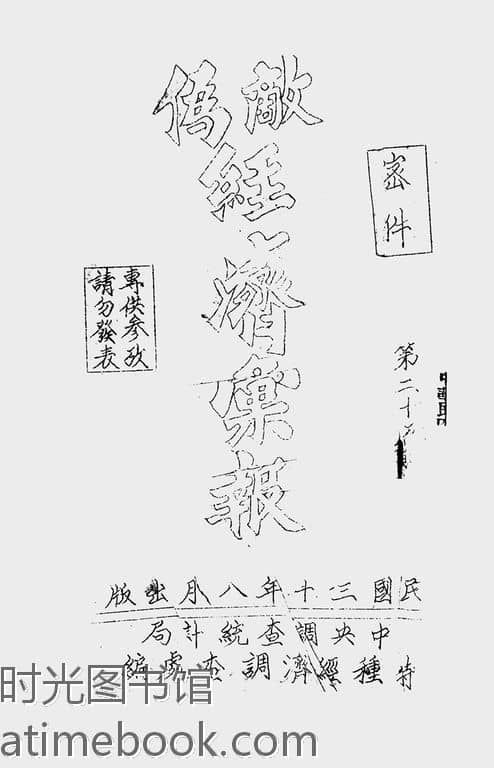 密件
敵偽
經濟彙報
專供参攷
請勿發表
第二十
民國三十年八月出版
中央調查統計局
特種經濟調查處編
时光图书馆
atimebook.com